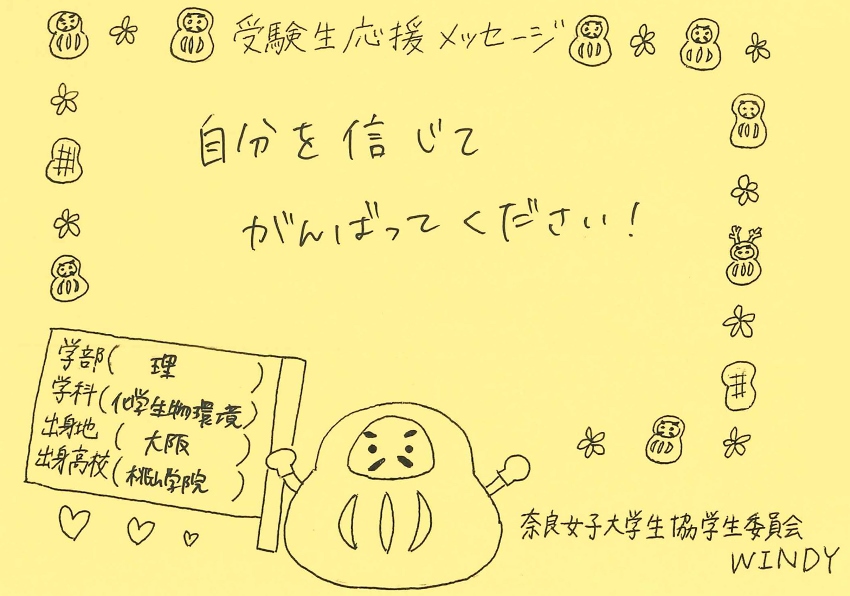 受験生応援メッセージ
自分を信じて
がんばってください!
学部( 理 )
学科(化学生物環境)
出身地 ( 大阪 )
出身高校(桃山学院 )
奈良女子大学生協学生委員会
WINDY